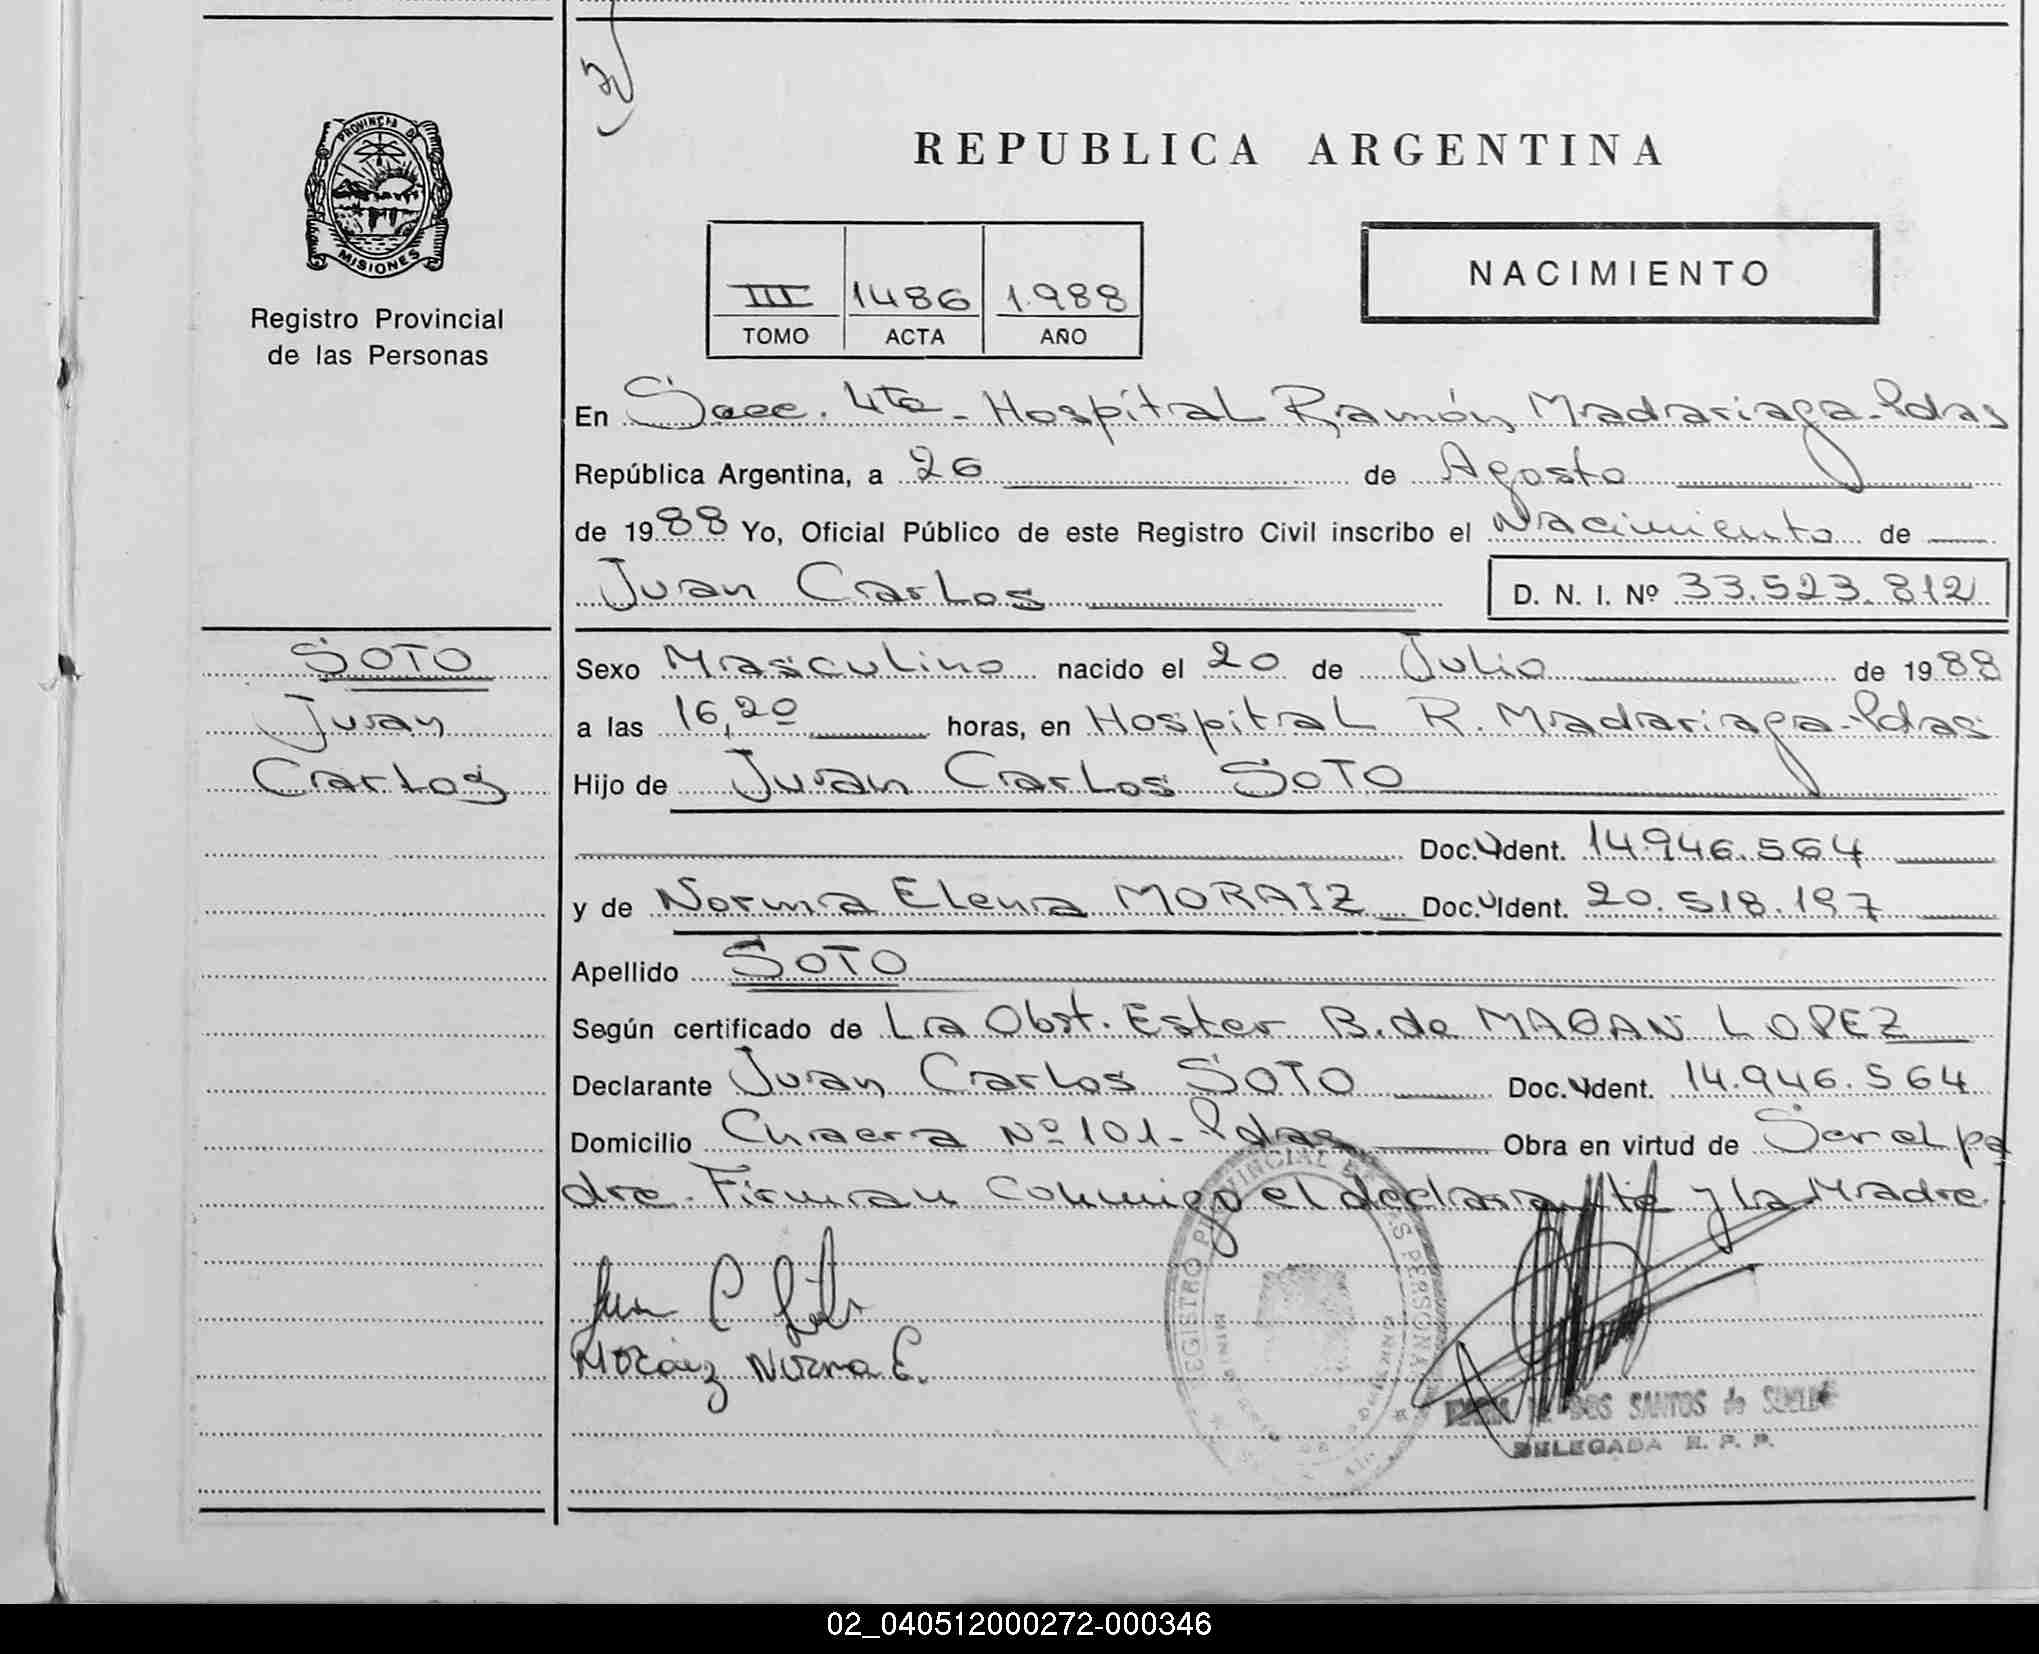 PROVINCIA DE
MISIONES
Registro Provincial
de las Personas
REPUBLICA ARGENTINA
III 1486 1.988
TOMO ACTA AÑO
NACIMIENTO
En Secc. 4ta - Hospital Ramón Madariaga - Pdas
República Argentina, a 26 de Agosto
de 1988 Yo, Oficial Público de este Registro Civil inscribo el Nacimiento de
Juan Carlos D. N. I. Nº 33.523.812
SOTO
Juan
Carlos
Sexo Masculino nacido el 20 de Julio de 1988
a las 16,20 horas, en Hospital R. Madariaga - Pdas
Hijo de Juan Carlos SOTO
Doc. Ident. 14.946.564
y de Norma Elena MORAIZ Doc. Ident. 20.518.197
Apellido SOTO
Según certificado de La Obst. Ester B. de MAGAN LOPEZ
Declarante Juan Carlos SOTO Doc. Ident. 14.946.564
Domicilio Chacra Nº 101 - Pdas Obra en virtud de Ser el pa
dre. Firman conmigo el declarante y La Madre.
Juan C Soto
Moraiz Norma E.
REGISTRO PROVINCIAL DE LAS PERSONAS
DOS SANTOS de
DELEGADA R. P. P.
02_040512000272-000346